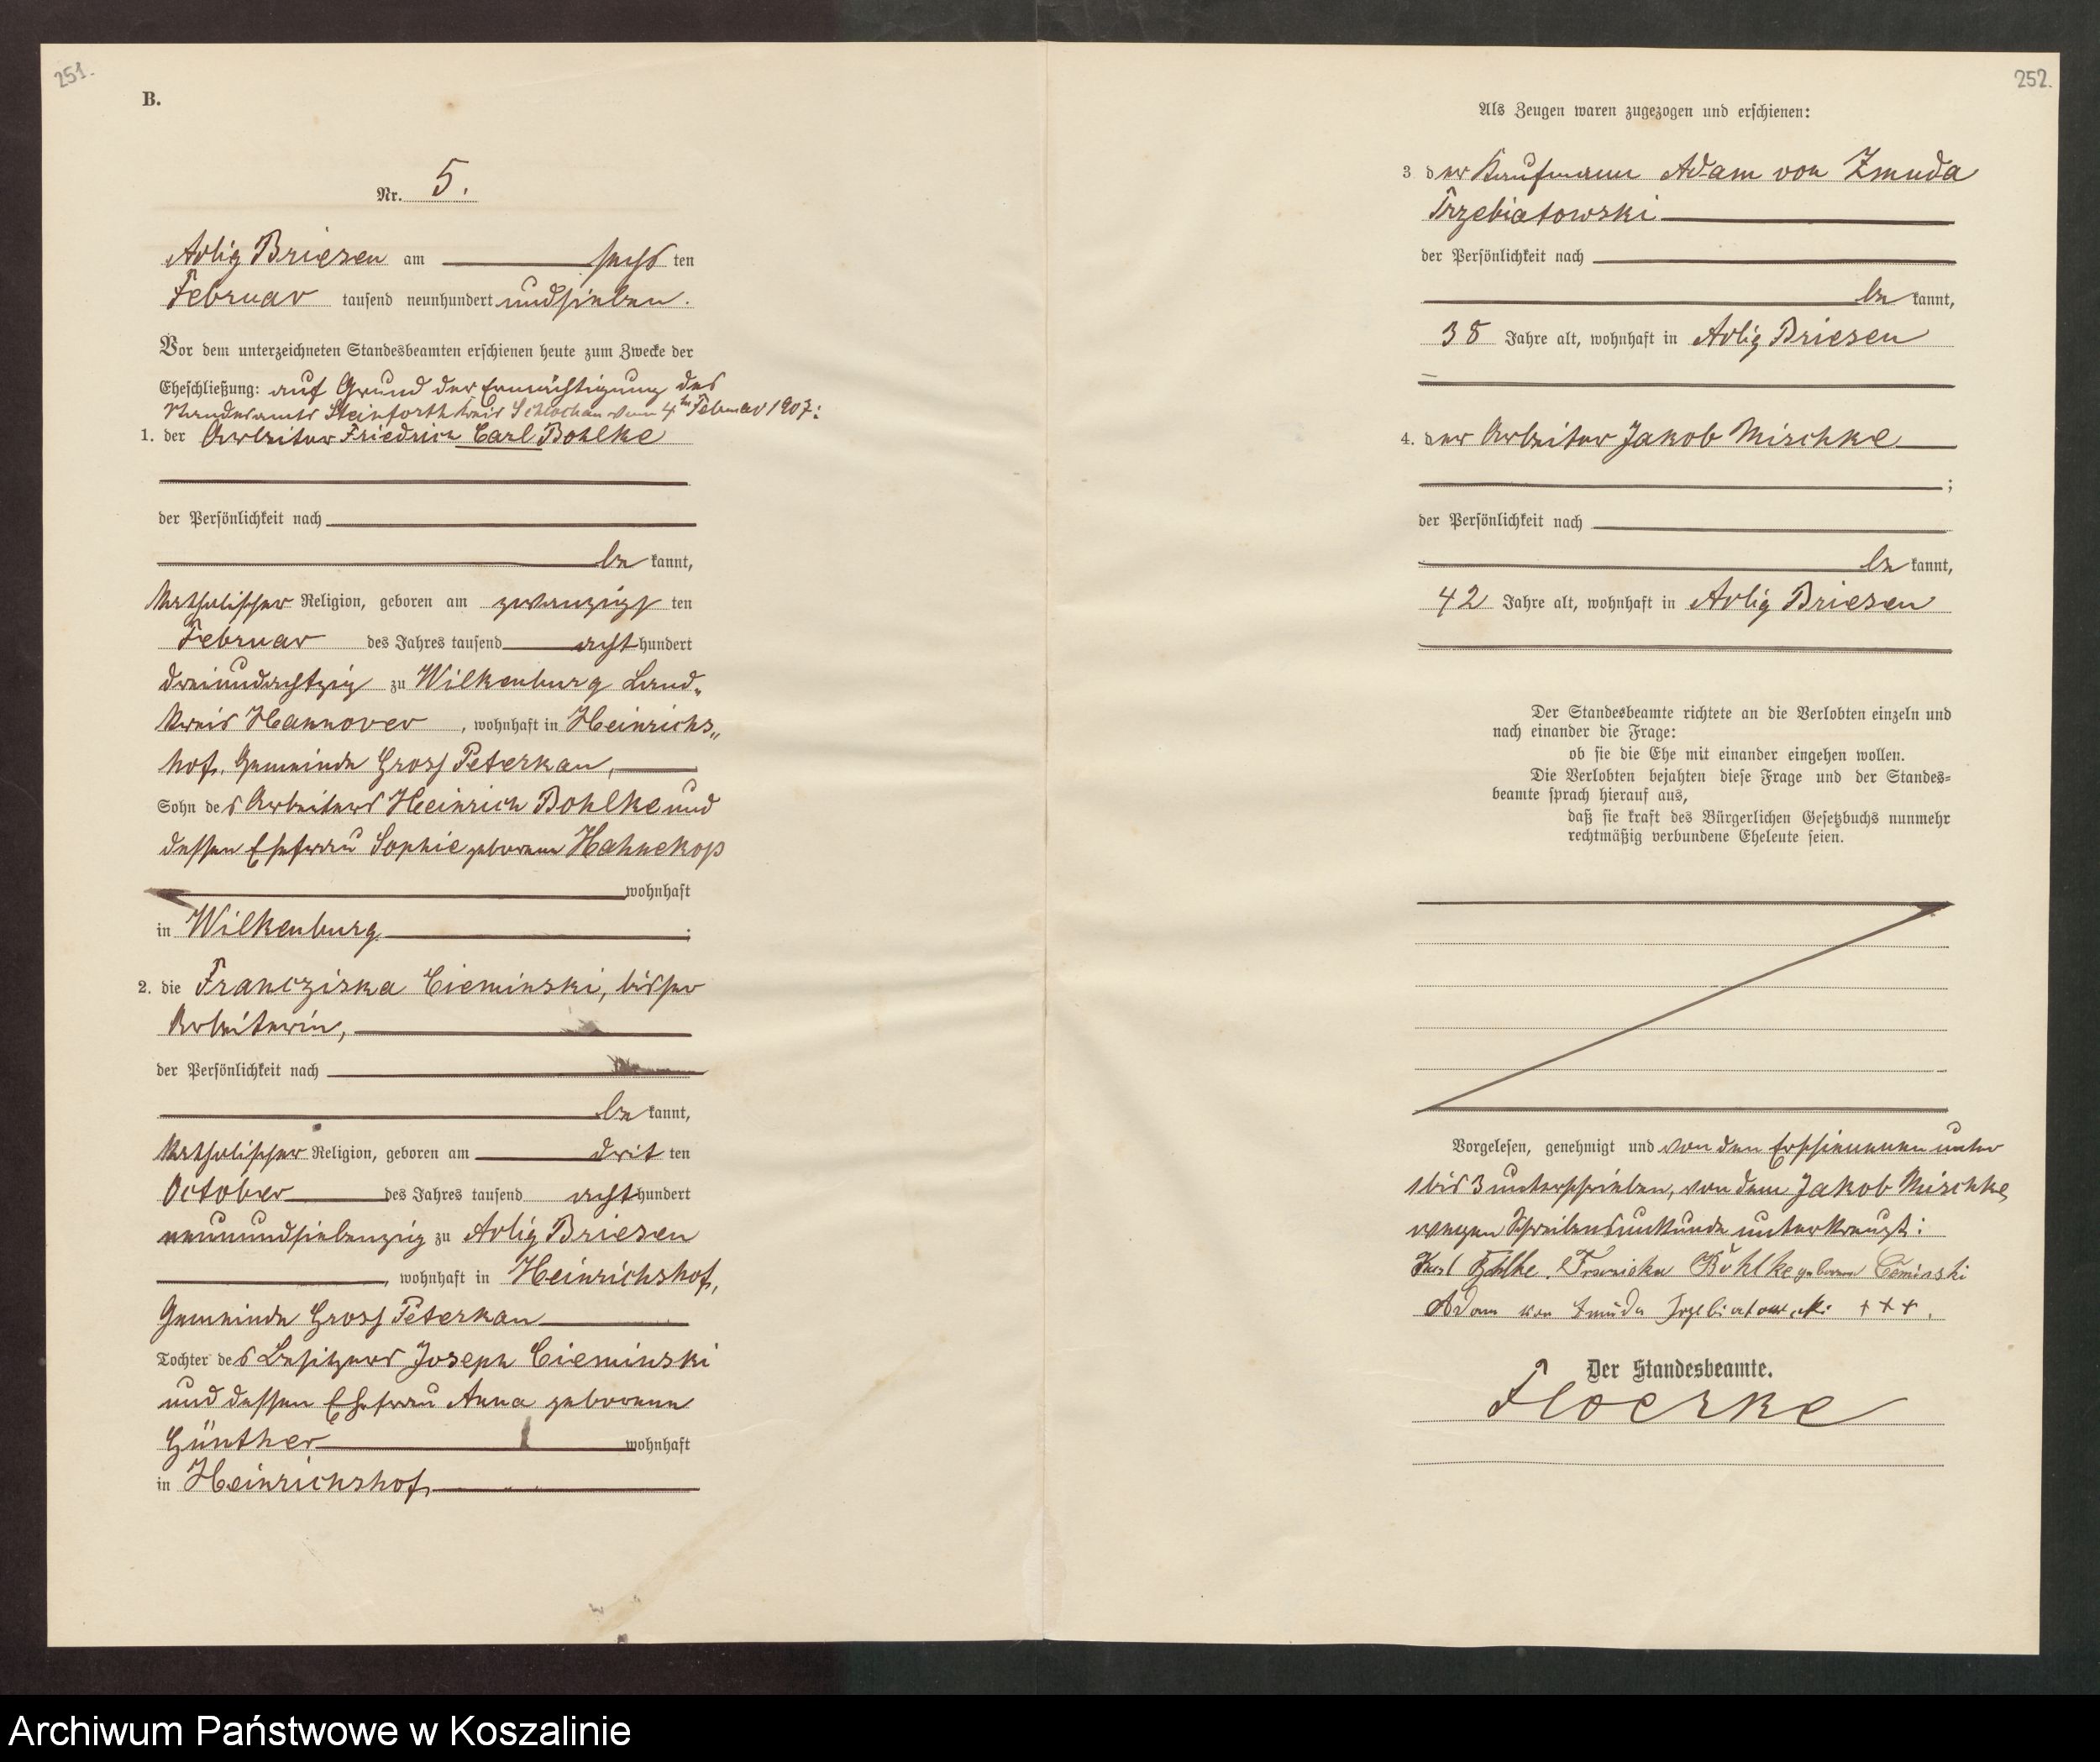 251.
B.
Nr. 5.
Adlig Briesen am sechs ten
Februar tausend neunhundert und sieben.
Vor dem unterzeichneten Standesbeamten erschienen heute zum Zwecke der
Eheschließung: auf Grund der Ermächtigung des
Standesamts Steinforth Kreis Schlochau vom 4ten Februar 1907:
1. der Arbeiter Friedrich Carl Bohlke
der Persönlichkeit nach
be kannt,
katholischer Religion, geboren am zwanzigs ten
Februar des Jahres tausend acht hundert
dreiundachtzig zu Wilkenburg Land„
kreis Hannover , wohnhaft in Heinrichs„
hof, Gemeinde Gross Peterkau,
Sohn des Arbeiters Heinrich Bohlke und
dessen Ehefrau Sophie geborene Hahnekop
wohnhaft
in Wilkenburg .
2. die Francziska Cieminski, bisher
Arbeiterin,
der Persönlichkeit nach
be kannt,
katholischer Religion, geboren am drit ten
October des Jahres tausend acht hundert
neunundsiebenzig zu Adlig Briesen
, wohnhaft in Heinrichshof,
Gemeinde Gross Peterkau
Tochter des Besitzers Joseph Cieminski
und dessen Ehefrau Anna geborene
Günther wohnhaft
in Heinrichshof,
252.
Als Zeugen waren zugezogen und erschienen:
3 der Kaufmann Adam von Zmuda
Trzebiatowski
der Persönlichkeit nach
be kannt,
38 Jahre alt, wohnhaft in Adlig Briesen
4. der Arbeiter Jakob Mischke
;
der Persönlichkeit nach
be kannt,
42 Jahre alt, wohnhaft in Adlig Briesen
Der Standesbeamte richtete an die Verlobten einzeln und
nach einander die Frage:
ob sie die Ehe mit einander eingehen wollen.
Die Verlobten bejahten diese Frage und der Standes=
beamte sprach hierauf aus,
daß sie kraft des Bürgerlichen Gesetzbuchs nunmehr
rechtmäßig verbundene Eheleute seien.
Vorgelesen, genehmigt und von den Erschienenen unter
1 bis 3 unterschrieben, von dem Jakob Mischke
wegen Schreibensunkunde unterkreuzt:
Karl Bohlke. Franziska Böhlke geborene Cieminski
Adam von Zmuda Trzebiatowski +++.
Der Standesbeamte.
Floerke
Archiwum Państwowe w Koszalinie